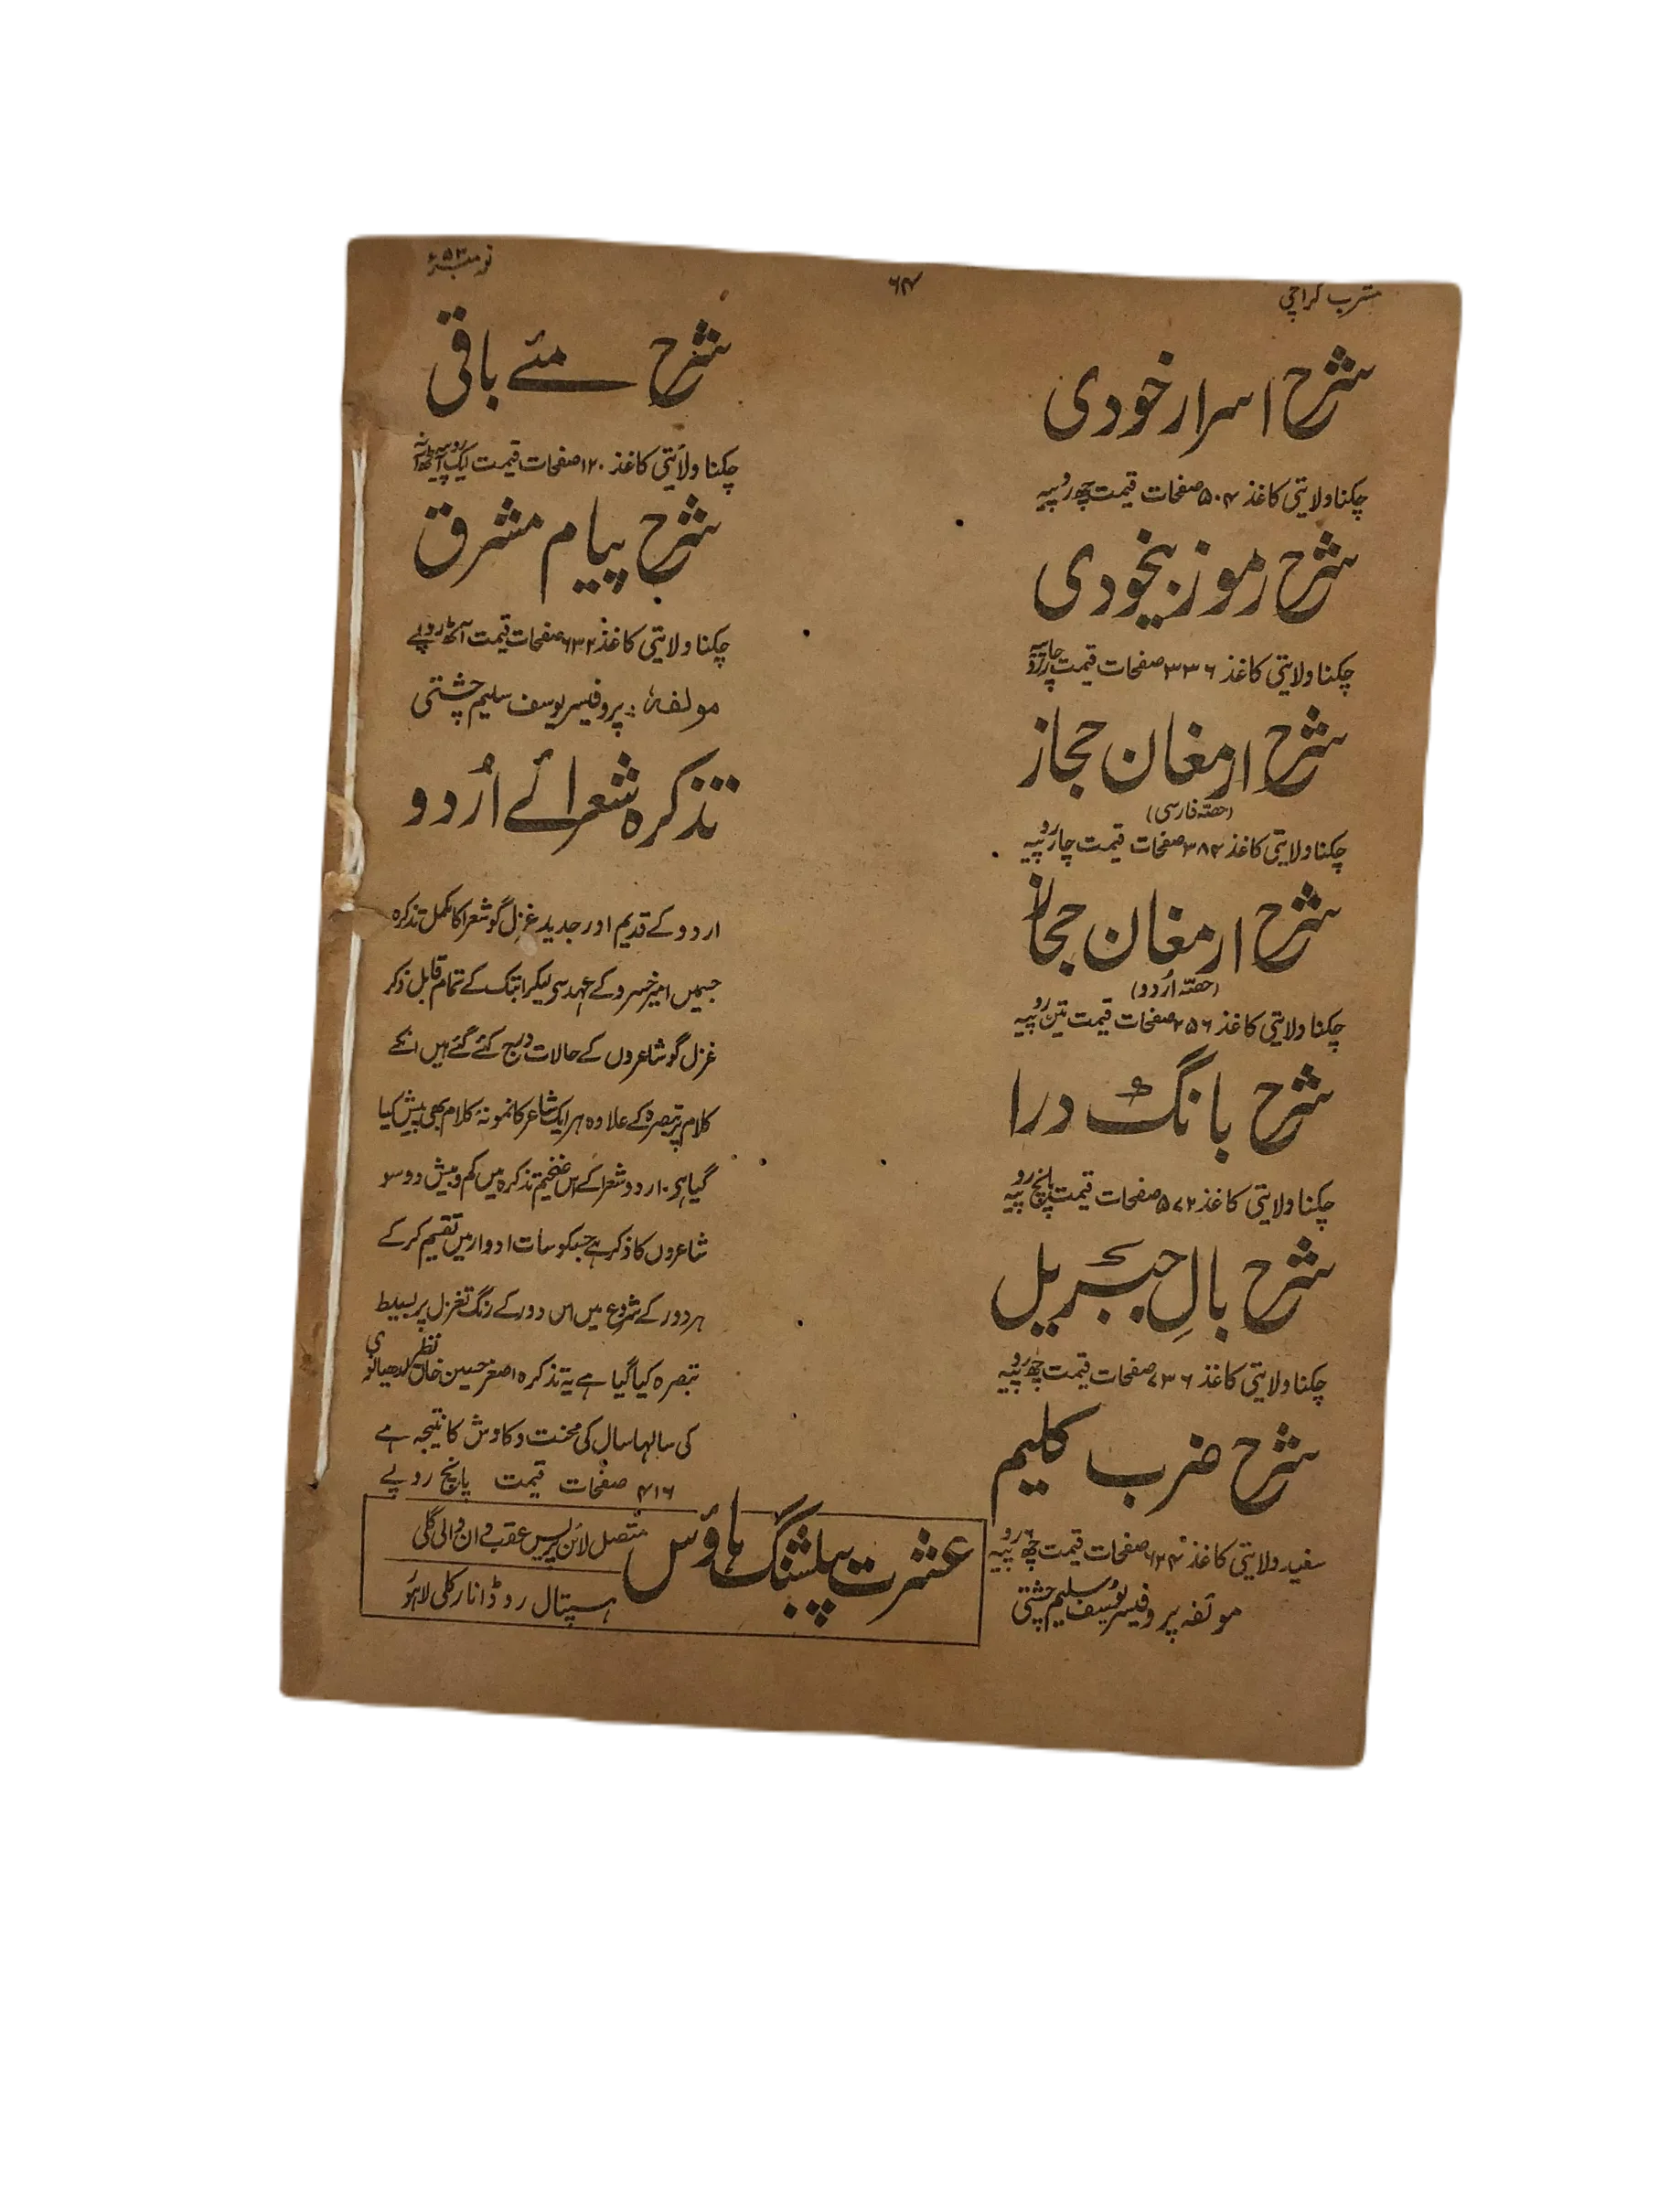 مشرب کراچی
۶۴
نومبر ۵۳ء
شرح اسرار خودی
چکنا ولایتی کاغذ ۵۰۴ صفحات قیمت چھ روپیہ
شرح رموز بیخودی
چکنا ولایتی کاغذ ۳۳۶ صفحات قیمت چار روپیہ
شرح ارمغان حجاز
(حصّہ فارسی)
چکنا ولایتی کاغذ ۳۸۴ صفحات قیمت چار روپیہ
شرح ارمغان حجاز
(حصّہ اُردو)
چکنا ولایتی کاغذ ۲۵۶ صفحات قیمت تین روپیہ
شرح بانگ درا
چکنا ولایتی کاغذ ۵۷۲ صفحات قیمت پانچ روپیہ
شرح بالِ جبریل
چکنا ولایتی کاغذ ۷۳۶ صفحات قیمت چھ روپیہ
شرح ضرب کلیم
سفید ولایتی کاغذ ۶۲۴ صفحات قیمت چھ روپیہ
مولفہ پروفیسر یوسف سلیم چشتی
شرح مئے باقی
چکنا ولایتی کاغذ ۱۲۰ صفحات قیمت ایک روپیہ آٹھ آنہ
شرح پیام مشرق
چکنا ولایتی کاغذ ۶۳۲ صفحات قیمت آٹھ روپے
مولفہ: پروفیسر یوسف سلیم چشتی
تذکرہ شعرائے اُردو
اردو کے قدیم اور جدید غزل گو شعرا کا مکمل تذکرہ
جسمیں امیر خسرو کے عہد سی لیکر ابتک کے تمام قابل ذکر
غزل گو شاعروں کے حالات درج کئے گئے ہیں انکے
کلام پر تبصرہ کے علاوہ ہر ایک شاعر کا نمونۂ کلام بھی پیش کیا
گیا ہی۔ اردو شعرا کے اس ضخیم تذکرہ میں کم و بیش دو سو
شاعروں کا ذکر ہے جسکو سات ادوار میں تقسیم کر کے
ہر دور کے شروع میں اس دور کے رنگ تغزل پر بسیط
تبصرہ کیا گیا ہے یہ تذکرہ اصغر حسین خاں نظر لدھیانوی
کی سالہا سال کی محنت و کاوش کا نتیجہ ہے
۴۱۶ صفحات قیمت پانچ روپے
عشرت پبلشنگ ہاؤس
متصل لائن پریس عقب وان والی گلی
ہسپتال روڈ انارکلی لاہور